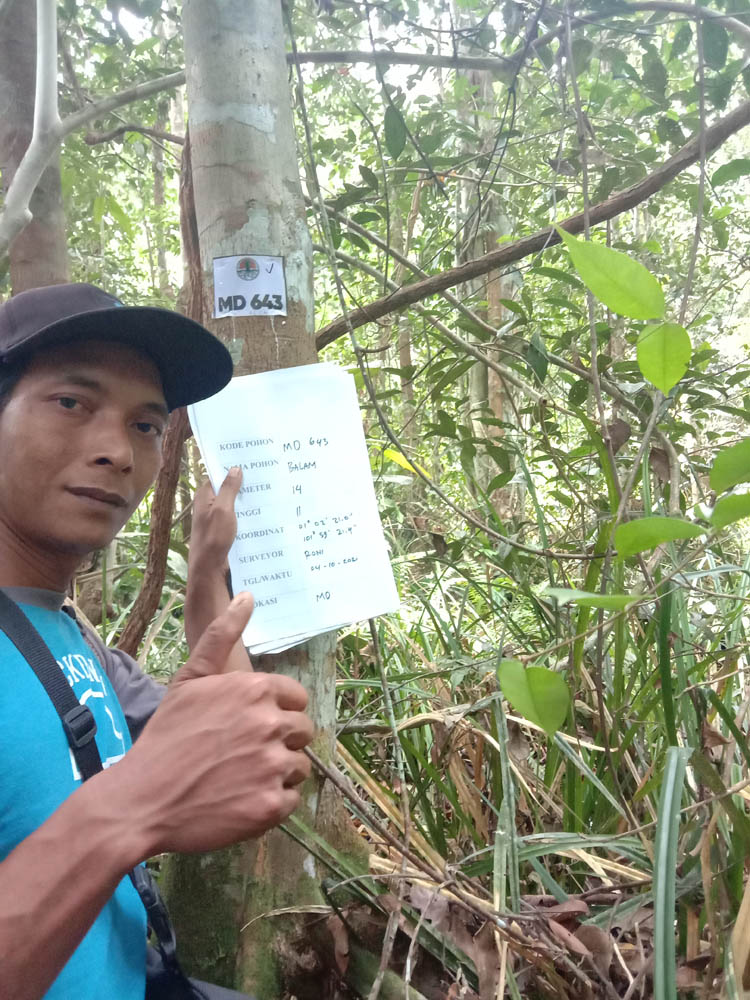 MD 643
KODE POHON MD 643
NAMA POHON BALAM
DIAMETER 14
TINGGI 11
KOORDINAT 01° 02' 21.0"
101° 59' 21.4"
SURVEYOR RONI
TGL/WAKTU 04-10-2021
LOKASI MD